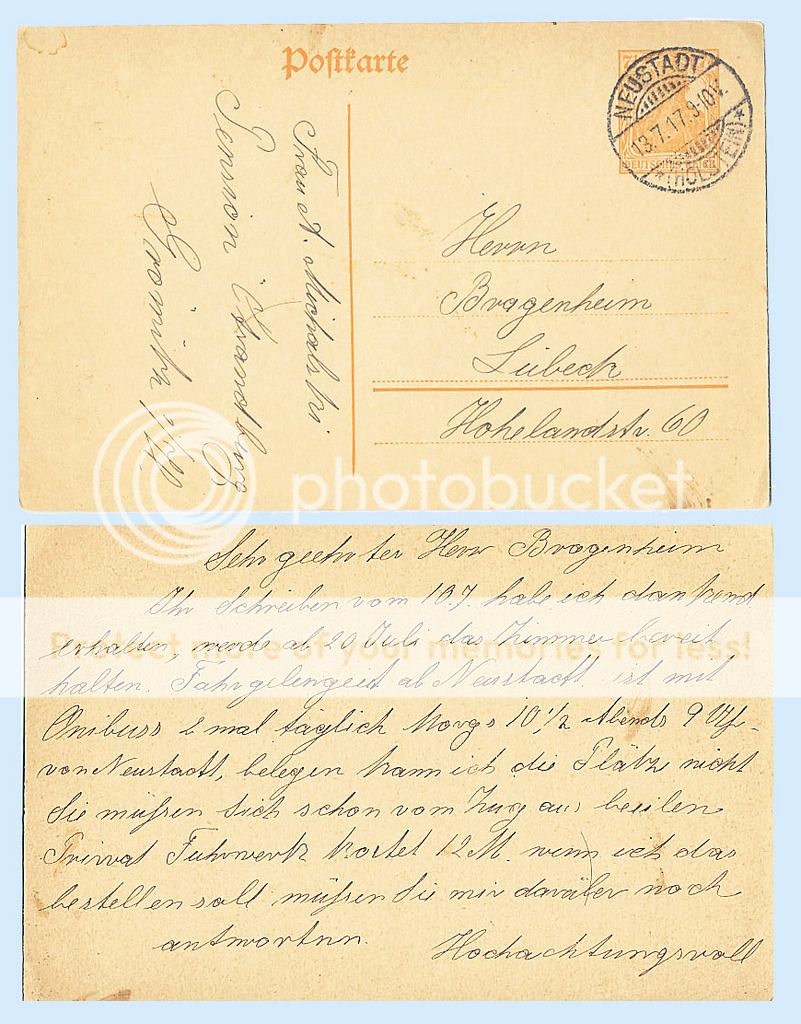 Postkarte
NEUSTADT
13.7.17.9-10V.
*(HOLSTEIN)*
DEUTSCHES REICH
Frau A. Michalski
Pension Strandburg
Grömitz
Herrn
Bragenheim
Lübeck
Hohelandstr. 60
photobucket
Protect more of your memories for less!
Sehr geehrter Herr Bragenheim
Ihr Schreiben vom 10.7. habe ich dankend
erhalten, werde ab 20 Juli das Zimmer bereit
halten. Fahrgelengeet ab Neustadt ist mit
Onibuss 2 mal täglich Morgs 10 1/2 Abends 9 Uhr
von Neustadt, belegen kann ich die Plätze nicht
Sie müßen Sich schon vom Zug aus beeilen
Privvat Fuhrwerk kostet 12 M. wenn ich das
bestellen soll müßen Sie mir darüber noch
antwortnn.
Hochachtungsvoll